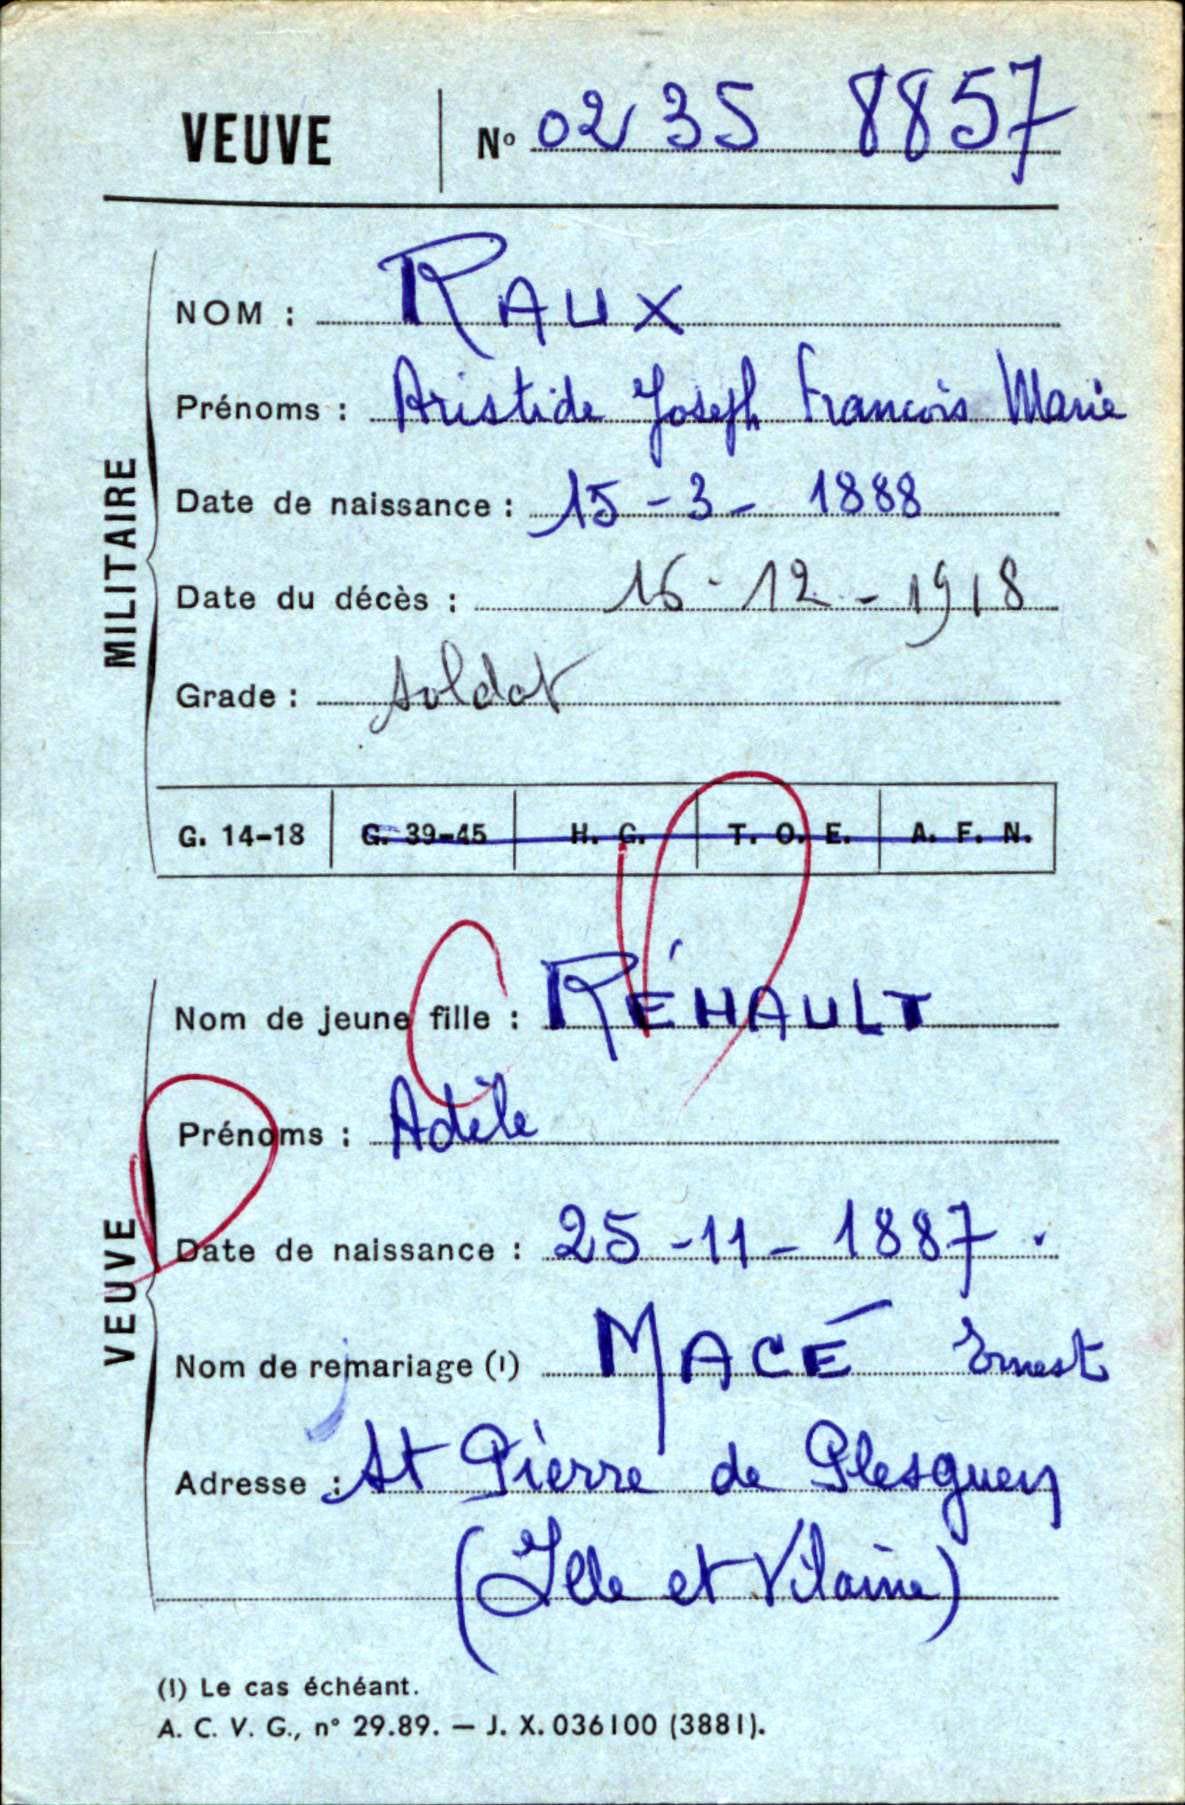 VEUVE
N° 0235 8857
MILITAIRE
NOM : RAUX
Prénoms : Aristide Joseph Francois Marie
Date de naissance : 15-3-1888
Date du décès : 16-12-1918
Grade : soldat
G. 14-18 G. 39-45 H. G. T. O. E. A. F. N.
VEUVE
Nom de jeune fille : RÉHAULT
Prénoms : Adèle
Date de naissance : 25-11-1887.
Nom de remariage (1) MACÉ Ernest
Adresse : St Pierre de Plesguen
(Ille et Vilaine)
(1) Le cas échéant.
A. C. V. G., n° 29.89. — J. X. 036100 (3881).